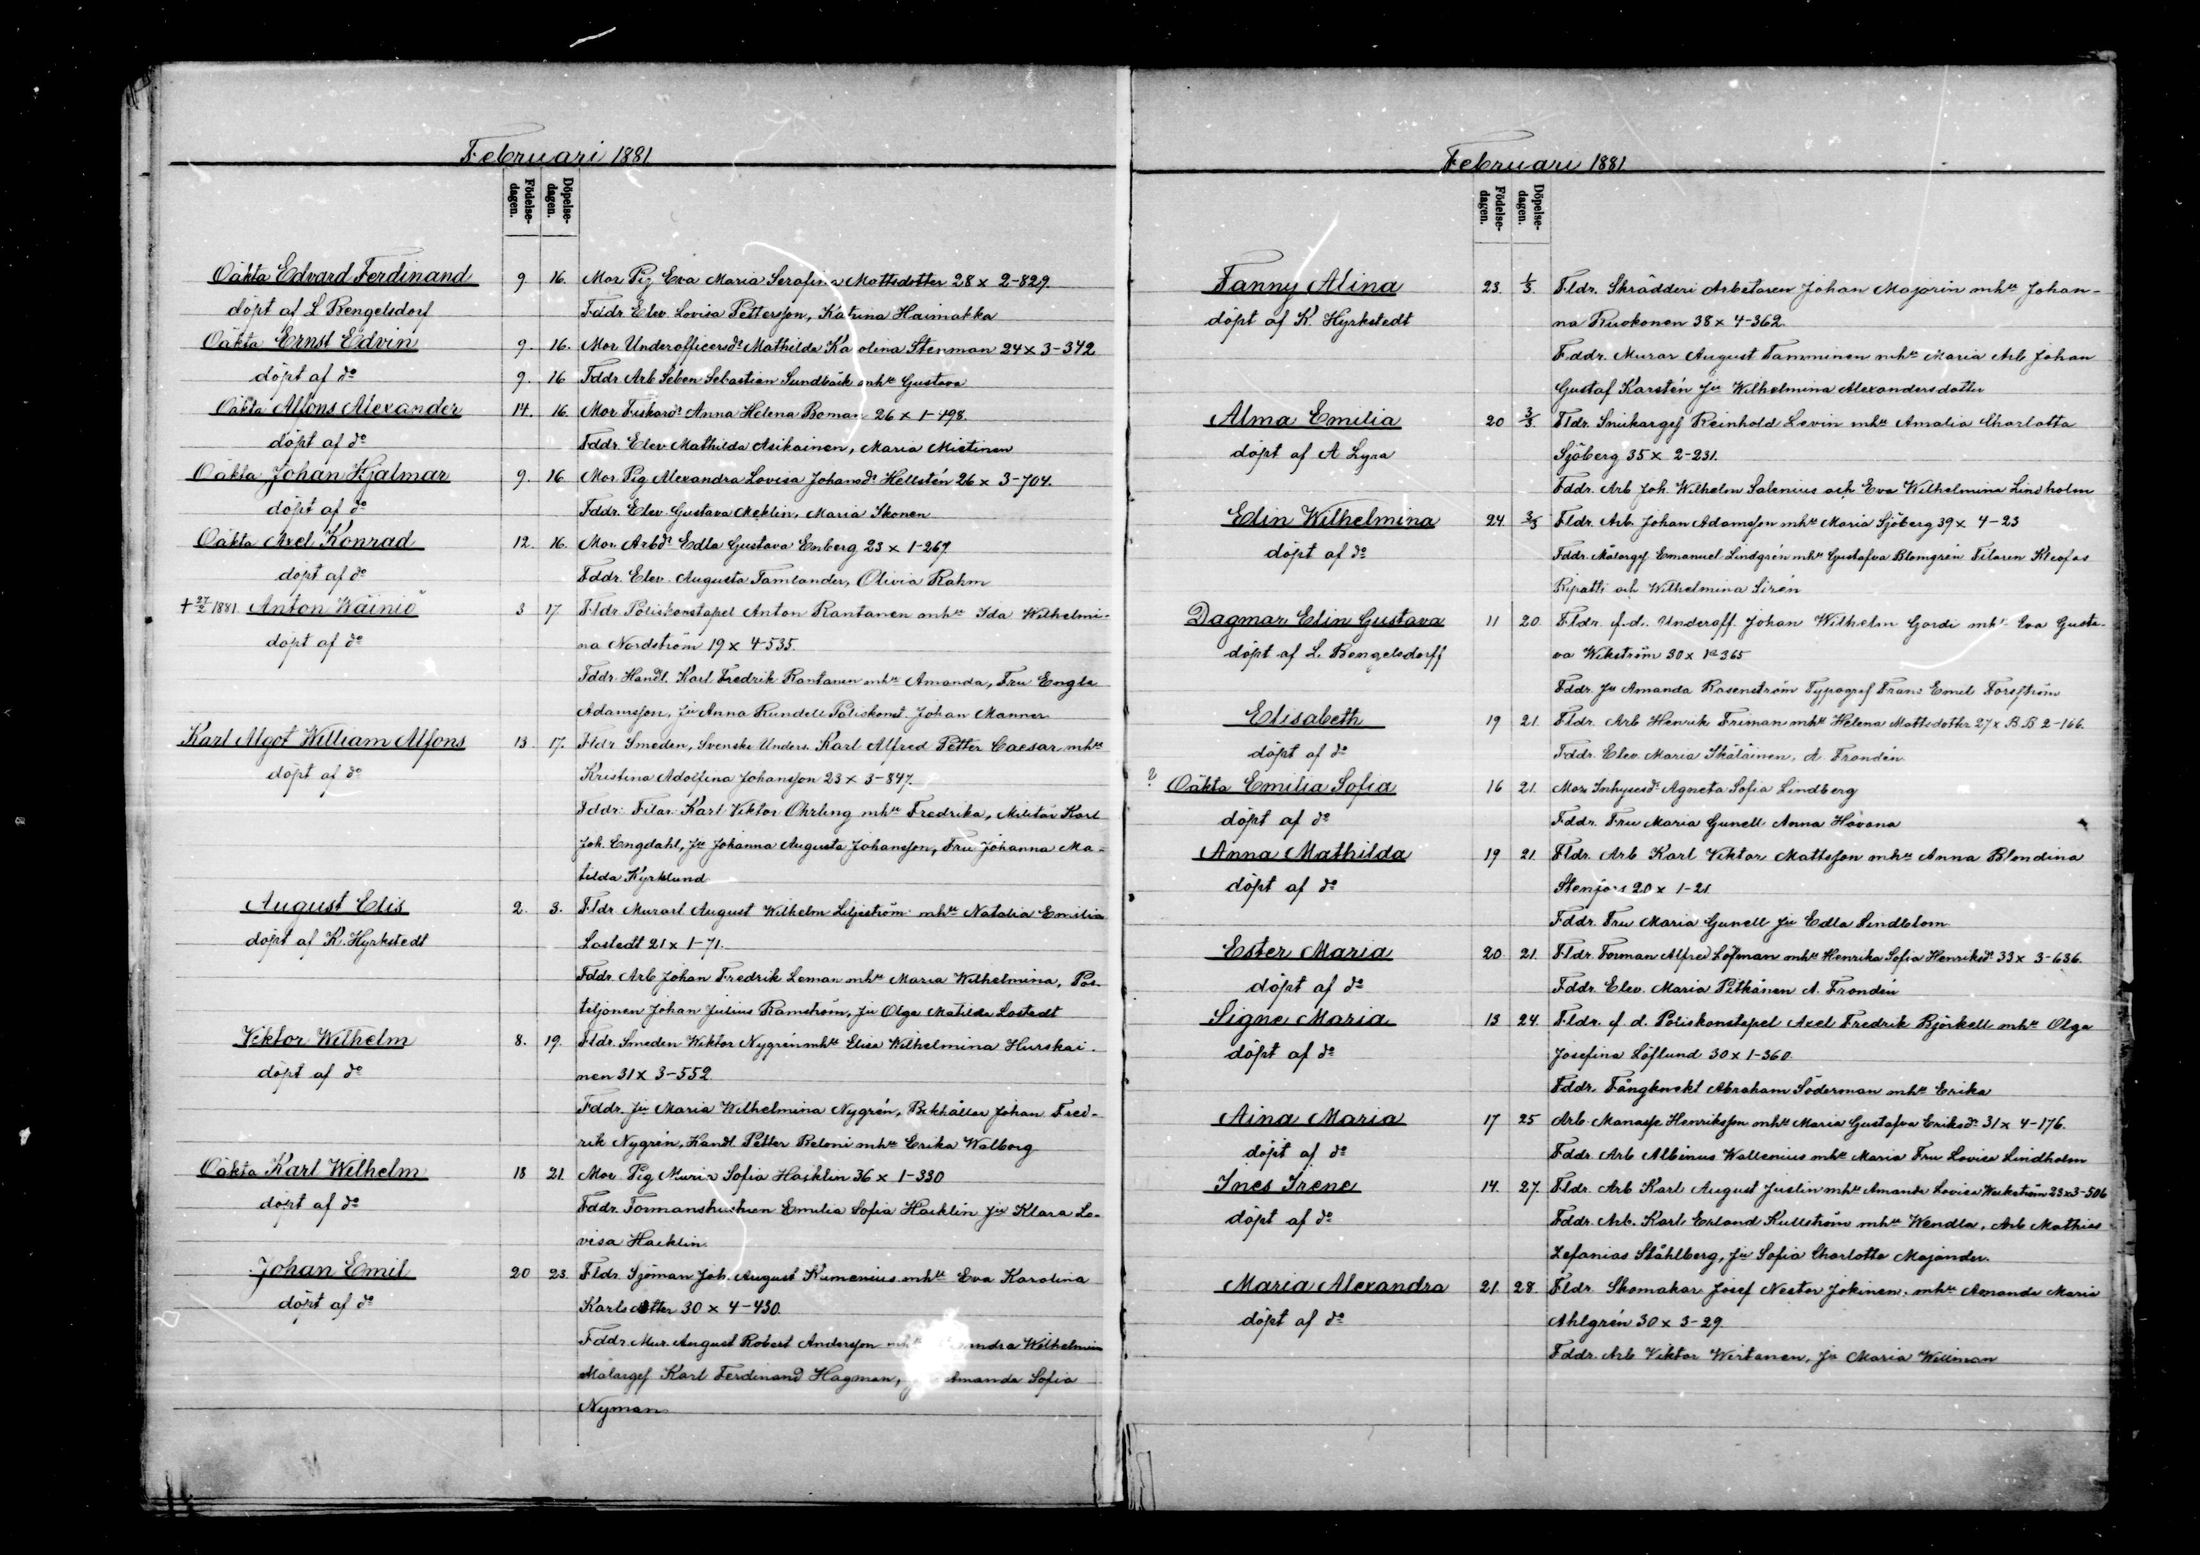 Februari 1881
Födelse-dagen. Döpelse-dagen.
Oäkta Edvard Ferdinand 9 16. Mor Pig Eva Maria Serafina Mattsdotter 28 x 2-829.
döpt af L Rengelsdorf Fddr. Elev. Lovisa Pettersson, Katrina Haimakka
Oäkta Ernst Edvin 9. 16. Mor Underofficersdr Mathilda Karolina Stenman 24 x 3-372
döpt af do 9. 16 Fddr Arb Seben Sebastian Sundbäck mhu Gustava
Oäkta Alfons Alexander 14. 16. Mor Fiskardr Anna Helena Boman 26 x 1-498.
döpt af do Fddr. Elev Mathilda Asikainen, Maria Mietinen
Oäkta Johan Hjalmar 9. 16 Mor Pig Alexandra Lovisa Johansdr Hellstén 26 x 3-704.
döpt af do Fddr. Elev. Gustava Meklin, Maria Ikonen
Oäkta Axel Konrad 12. 16. Mor. Arbdr Edla Gustava Enberg 23 x 1-267.
döpt af do Fddr. Elev. Augusta Tamlander, Olivia Rahm
+ 27/2 1881. Anton Wäinö 3 17 Fldr Poliskonstapel Anton Rantanen mhu Ida Wilhelmi-
döpt af do na Nordström 19 x 4-535.
Fddr. Handl. Karl Fredrik Rantanen mhu Amanda, Fru Engla
Adamsson, Ju Anna Rundell Poliskonst. Johan Manner
Karl Algot William Alfons 13. 17. Fldr Smeden, Svenske Unders. Karl Alfred Petter Caesar mhu
döpt af do Kristina Adolfina Johansson 23 x 3-847.
Fddr: Filar. Karl Viktor Öhrling mhu Fredrika, Militär Karl
Joh. Engdahl, Ju Johanna Augusta Johansson, Fru Johanna Ma-
tilda Kyrklund
August Elis 2. 3. Fldr Murarl August Wilhelm Liljeström mhu Natalia Emilia
döpt af K. Hyrkstedt Lostedt 21 x 1-71.
Fddr. Arb Johan Fredrik Leman mhu Maria Wilhelmina, Pos-
tiljonen Johan Julius Ramström, Ju Olga Matilda Lostedt
Viktor Wilhelm 8. 19. Fldr. Smeden Viktor Nygrén mhu Elisa Wilhelmina Hurskai-
döpt af do nen 31 x 3-552
Fddr. Ju Maria Wilhelmina Nygrén, Bokhållar Johan Fred-
rik Nygrén, Handl Petter Reloni mhu Erika Walborg
Oäkta Karl Wilhelm 18 21. Mor Pig Maria Sofia Hacklin 36 x 1-330
döpt af do Fddr. Formanshustrun Emilia Sofia Hacklin Ju Klara Lo-
visa Hacklin.
Johan Emil 20 23. Fldr. Sjöman Joh. August Kumenius mhu Eva Karolina
döpt af do Karlsdotter 30 x 4-430.
Fddr. Mur. August Robert Andersson Wilhelmina
Målargef Karl Ferdinand Hagman, Amanda Sofia
Nyman
Februari 1881
Födelse-dagen. Döpelse-dagen.
Fanny Alina 23. 1/3. Fldr. Skrädderi Arbetaren Johan Majorin mhu Johan-
döpt af K. Hyrkstedt na Ruokonen 38 x 4-362.
Fddr. Murar August Tamminen mhu Maria Arb Johan
Gustaf Karstén Ju Wilhelmina Alexandersdotter
Alma Emilia 20 3/3. Fldr. Snickargef Reinhold Levin mhu Amalia Charlotta
döpt af A Lyra Sjöberg 35 x 2-231.
Fddr. Arb Joh. Wilhelm Salenius och Eva Wilhelmina Lindholm
Elin Wilhelmina 24. 3/3 Fldr. Arb. Johan Adamsson mhu Maria Sjöberg 39 x 4-23
döpt af do Fddr. Målargef Emanuel Lindgrén mhu Gustafva Blomgrén Filaren Kleofas
Ripatti och Wilhelmina Sirén
Dagmar Elin Gustava 11 20. Fldr. f.d. Underoff. Johan Wilhelm Gardi mhu Eva Gusta-
döpt af L. Rengelsdorff va Wikström 30 x 1a 365
Fddr. Ju Amanda Rosenström Typograf Frans Emil Forsström
Elisabeth 19 21. Fldr. Arb Henrik Friman mhu Helena Mattsdotter 27 x B.B 2-166.
döpt af do Fddr. Elev. Maria Ikäläinen, A. Frondén.
? Oäkta Emilia Sofia 16 21. Mor Inhysesdr Agneta Sofia Lindberg
döpt af do Fddr. Fru Maria Gunell Anna Havana
Anna Mathilda 19 21. Fldr. Arb Karl Viktor Mattsson mhu Anna Blondina
döpt af do Stenfors 20 x 1-21
Fddr. Fru Maria Gunell Ju Edla Lindblom
Ester Maria 20. 21. Fldr. Forman Alfred Löfman mhu Henrika Sofia Henriksdr 33 x 3-636.
döpt af do Fddr. Elev. Maria Pitkänen A. Frondén
Signe Maria 13 24. Fldr. f.d. Poliskonstapel Axel Fredrik Björkell mhu Olga
döpt af do Josefina Löflund 30 x 1-360.
Fddr. Fångknekt Abraham Söderman mhu Erika
Aina Maria 17 25 Arb. Manasse Henriksson mhu Maria Gustafva Eriksdr 31 x 4-176.
döpt af do Fddr. Arb Albinus Wallenius mhu Maria Fru Lovisa Lindholm
Ines Irene 14. 27. Fldr. Arb Karl August Juslin mhu Amanda Lovisa Weckström 23 x 3-506
döpt af do Fddr. Arb. Karl Erland Kullström mhu Wendla, Arb Mathias
Zefanias Ståhlberg, Ju Sofia Charlotta Majander.
Maria Alexandra 21. 28. Fldr. Skomakar Josef Nestor Jokinen, mhu Amanda Maria
döpt af do Ahlgrén 30 x 3-29.
Fddr. Arb Viktor Wirtanen, Ju Maria Willman